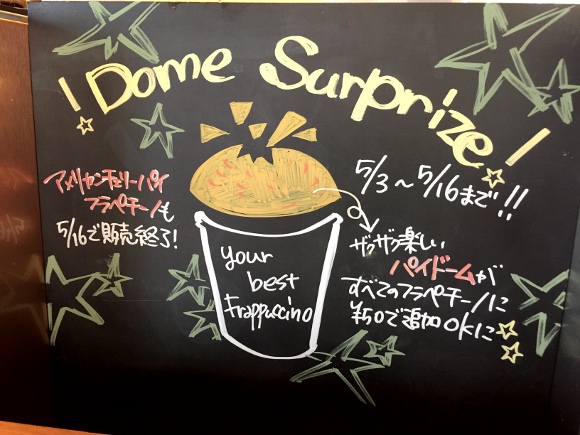 Dome Surprize!
アメリカンチェリーパイ
フラペチーノも
5/16で販売終了!
your
best
Frappuccino
5/3～5/16まで!!
ザクザク楽しい
パイドームが
すべてのフラペチーノに
¥50で追加OKに